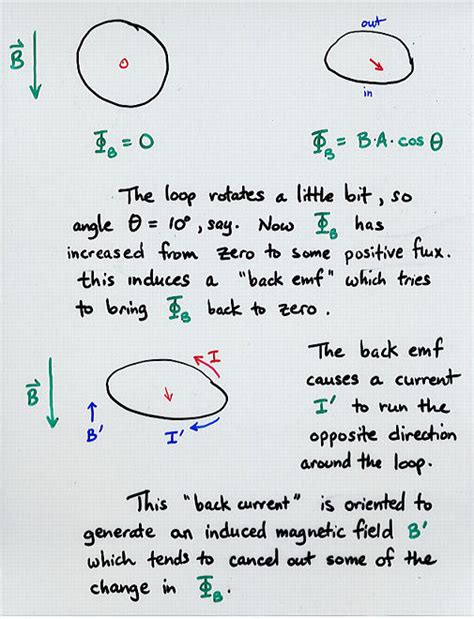 out
B
in
Φ_B = 0
Φ_B = B·A·cos θ
The loop rotates a little bit, so
angle θ = 10°, say. Now Φ_B has
increased from zero to some positive flux.
this induces a "back emf" which tries
to bring Φ_B back to zero.
I
B
B'
I'
The back emf
causes a current
I' to run the
opposite direction
around the loop.
This "back current" is oriented to
generate an induced magnetic field B'
which tends to cancel out some of the
change in Φ_B.